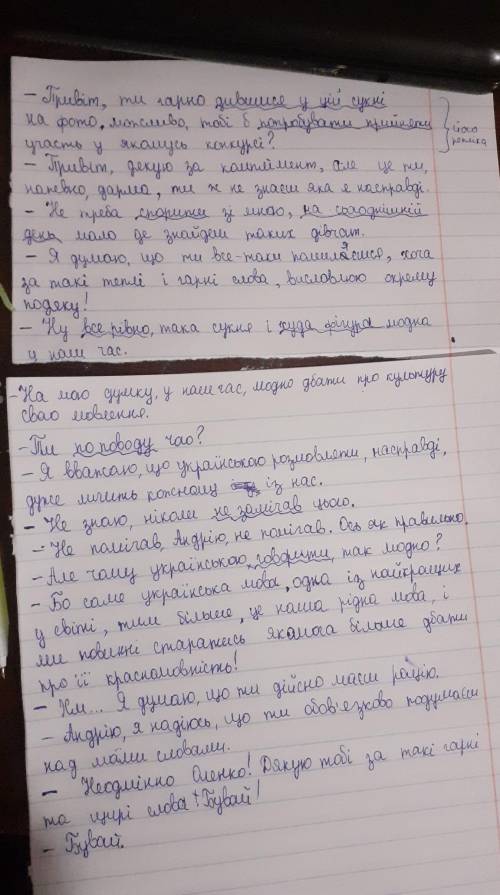 - Привіт, ти гарно дивишся у цій сукні
на фото, можливо, тобі б потробувати прийняти
участь у якомусь конкурсі?
його
репліка
- Привіт, дякую за комплімент, але це ти,
напевно, дарма, ти ж не знаєш яка я насправді.
- Не треба спорити зі мною, на сьогоднішній
день мало де знайдеш таких дівчат.
- Я думаю, що ти все-таки помиляєшся, хоча
за такі теплі і гарні слова, висловлюю окрему
подяку!
- Ну все рівно, така сукня і худа фігура модна
у наш час.
- На мою думку, у наш час, модно дбати про культуру
свого мовлення.
- Ти по поводу чого?
- Я вважаю, що українською розмовляти, насправді,
дуже личить кожному із нас.
- Не знаю, ніколи не замічав цього.
- Не помічав, Андрію, не помічав. Ось як правильно.
- Але чому українською говорити, так модно?
- Бо саме українська мова, одна із найкращих
у світі, тим більше, це наша рідна мова, і
ми повинні старатись якомога більше дбати
про її красномовність!
- Хм... Я думаю, що ти дійсно маєш рацію.
- Андрію, я надіюсь, що ти обов'язково подумаєш
над моїми словами.
- Неодмінно Оленко! Дякую тобі за такі гарні
та щирі слова! Бувай!
- Бувай.